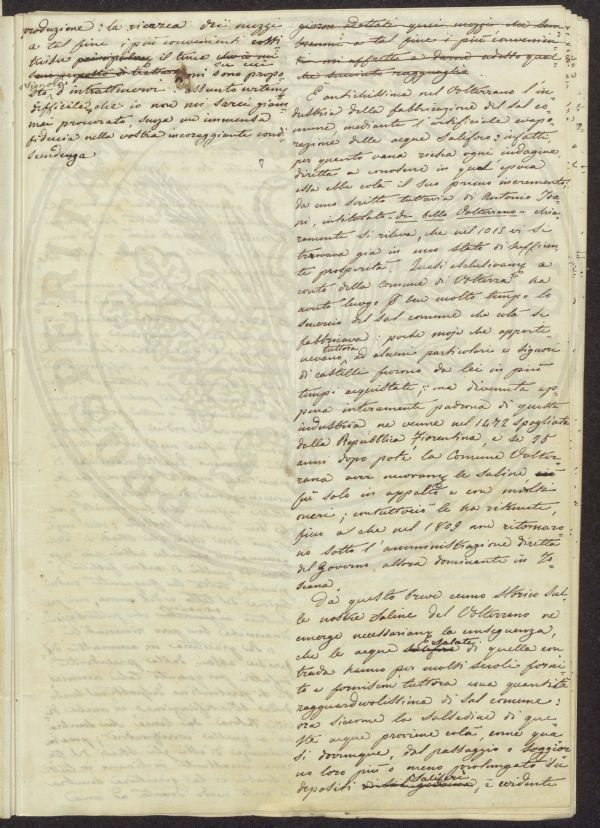 produzione: la ricerca dei mezzi
a tal fine i più convenienti costi
tuisce principalmente il tema che io mi
sono proposto di trattare, mi sono propo
sto, Signori, d'intrattenervi: assunto certam.
difficile, e che io non mi sarei giam
mai procurato, senza un'immensa
fiducia nella vostra incoraggiante cond
iscendenza
giorno adottati quei mezzi che sem
breranno a tal fine i più convenien
ti mi affretto a darne adesso qual
che succinto ragguaglio.
È antichissima nel Volterrano l'in
dustria della fabbricazione del sal co
mune, mediante l'artificiale evapo
razione delle acque salifere: infatti
per quanto vana riesca ogni indagine
diretta a conoscere in qual'epoca
essa ebbe colà il suo primo incremento,
da uno scritto tuttavia di Antonio Iva
ni, intitolato de bello Volterrano chia
ramente si rileva, che nel 1015 vi si
trovava già in uno stato di sufficien
te prosperità. Quasi esclusivam. a
conto della Comune di Volterra ha
avuto luogo p ben molto tempo lo
smercio del sal comune che colà si
fabbricava: poche moje che apparte
nevano tuttora ad alcuni particolari e Signori
di castella furono da lei in più
tempi acquistate; ma divenuta ap
pena interamente padrona di questa
industria ne venne nel 1472 spogliata
dalla Repubblica Fiorentina, e se 95
anni dopo potè la Comune Volter
rana aver nuovam. le Saline
fù solo in appalto e con molti
oneri; contuttociò le ha ritenute,
fino a che nel 1809 non ritornaro
no sotto l'amministrazione diretta
del Governo allora dominante in To
scana.
Da questo breve cenno storico sul
le nostre Saline del Volterrano ne
emerge necessariam. la conseguenza,
che le acque salifere salate di quella con
trada hanno per molti secoli forni
to e forniscon tuttora una quantità
ragguardevolissima di sal comune:
ora siccome la salsedine di que
ste acque proviene colà, come qua
si dovunque, dal passaggio o soggior
no loro più o meno prolungato su
depositi saliferi, è evidente